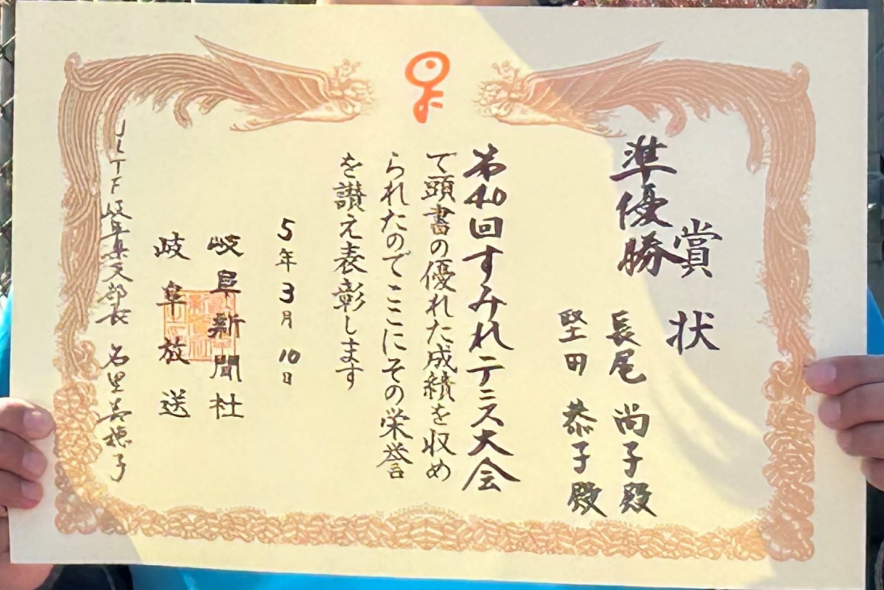 賞状
準優勝
長尾尚子殿
堅田恭子殿
第40回すみれテニス大会
て頭書の優れた成績を収め
られたのでここにその栄誉
を讃え表彰します
5年3月10日
岐阜新聞社
岐阜放送
JLTF岐阜県支部長 名里美穂子